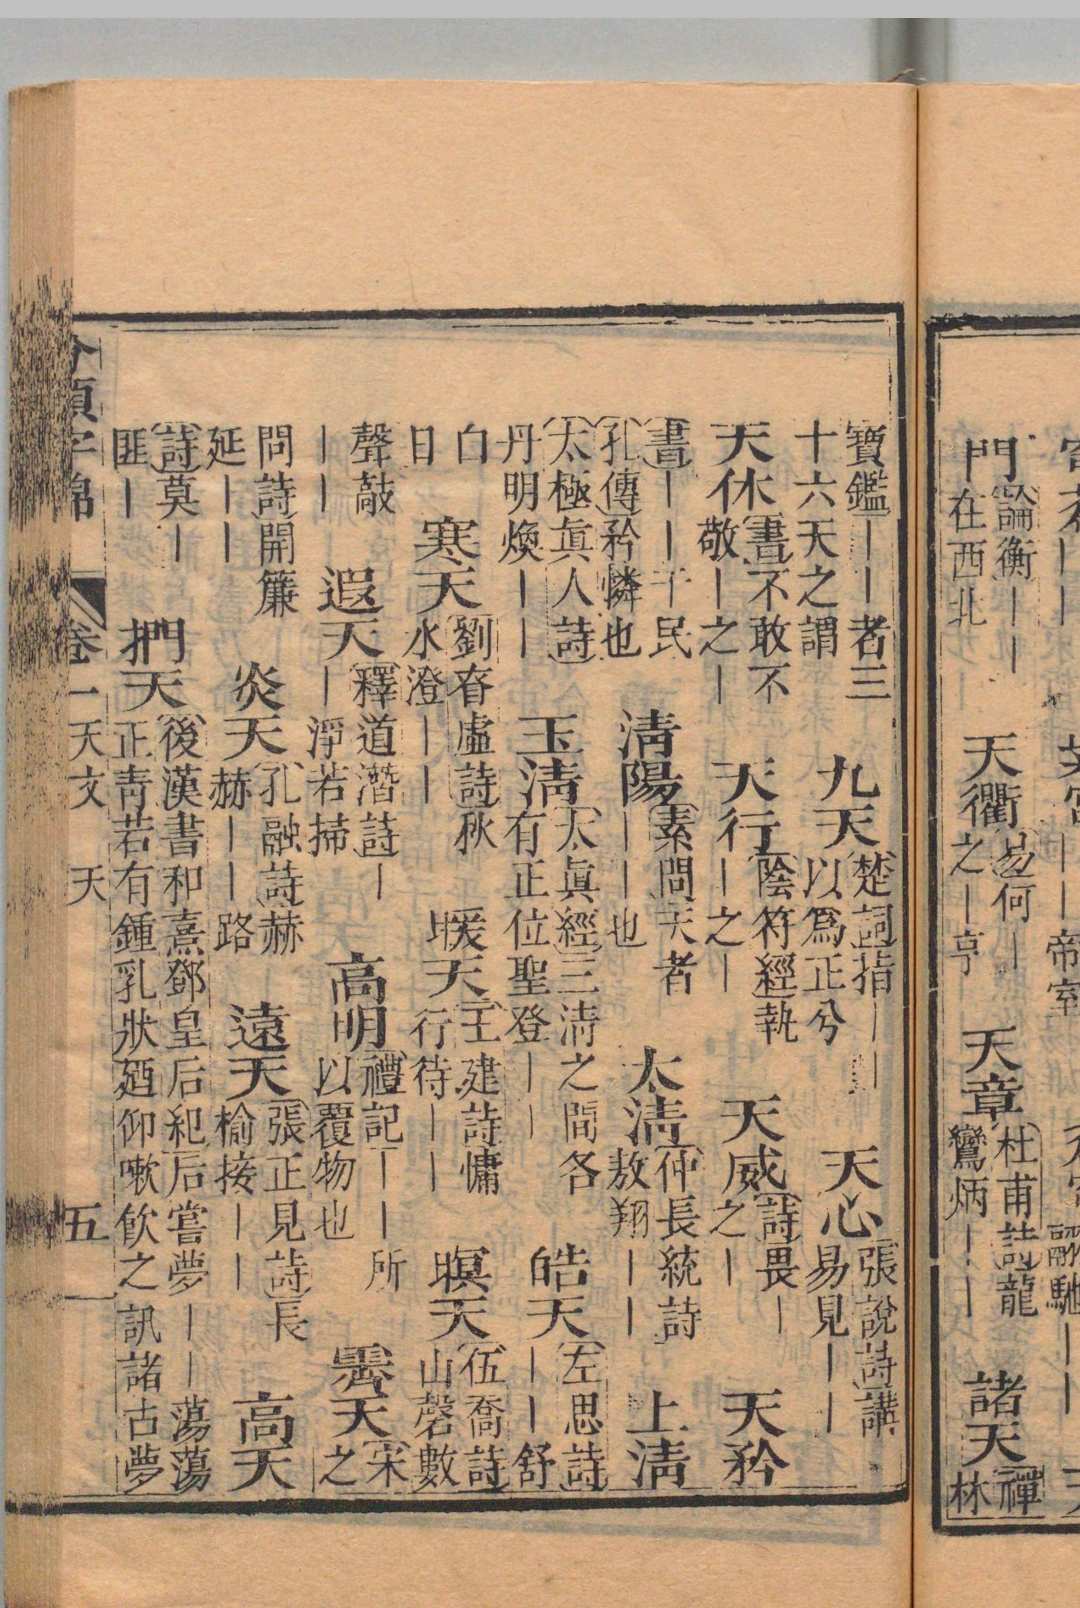 門論衡｜｜在西北 天衢易何｜之｜亨 天章杜甫詩龍鸞炳｜｜ 諸天禪林
寶鑑｜｜者三十六天之謂 九天楚詞指｜｜以爲正兮 天心張說詩講易見｜｜
天休書不敢不敬｜之｜ 天行陰符經執｜之｜ 天威詩畏｜之｜ 天矜
書｜｜于民孔傳矜憐也 清陽素問天者｜｜也 太清仲長統詩敖翔｜｜ 上清
太極眞人詩丹明煥｜｜ 玉清太眞經三清之間各有正位聖登｜｜ 皓天左思詩｜｜舒
白日｜ 寒天劉眘虛詩秋水澄｜｜ 暖天王建詩慵行待｜｜ 暝天伍喬詩山磬數
聲敲｜｜ 遐天釋道潛詩｜｜淨若掃 高明禮記｜｜所以覆物也 霽天宋之
問詩開簾延｜｜ 炎天孔融詩赫赫｜｜路 遠天張正見詩長榆接｜｜ 高天
詩莫｜匪｜ 捫天後漢書和熹鄧皇后紀后嘗夢｜｜蕩蕩正青若有鍾乳狀廼仰嗽飮之訊諸古夢
分類字錦 卷一 天文 天 五